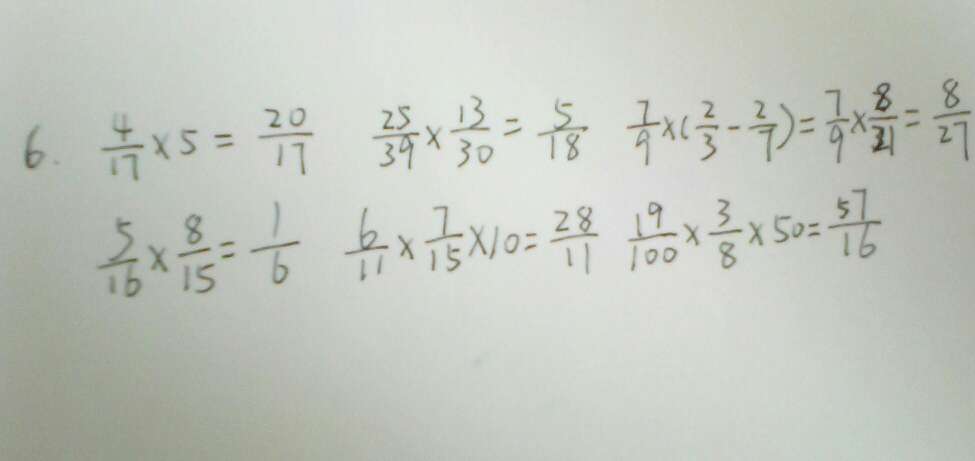 6. 4/17 × 5 = 20/17 25/39 × 13/30 = 5/18 7/9 × (2/3 - 2/7) = 7/9 × 8/21 = 8/27
5/16 × 8/15 = 1/6 6/11 × 7/15 × 10 = 28/11 19/100 × 3/8 × 50 = 57/16